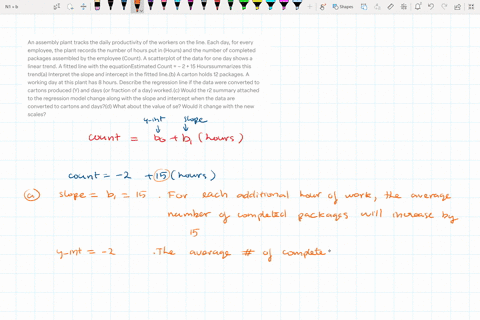 N1 + b
Shapes
An assembly plant tracks the daily productivity of the workers on the line. Each day, for every
employee, the plant records the number of hours put in (Hours) and the number of completed
packages assembled by the employee (Count). A scatterplot of the data for one day shows a
linear trend. A fitted line with the equationEstimated Count = - 2 + 15 Hourssummarizes this
trend(a) Interpret the slope and intercept in the fitted line.(b) A carton holds 12 packages. A
working day at this plant has 8 hours. Describe the regression line if the data were converted to
cartons produced (Y) and days (or fraction of a day) worked.(c) Would the r2 summary attached
to the regression model change along with the slope and intercept when the data are
converted to cartons and days?(d) What about the value of se? Would it change with the new
scales?
y-int slope
count = b0 + b1 (hours)
count = -2 + 15 (hours)
(a) slope = b1 = 15 . For each additional hour of work, the average
number of completed packages will increase by
15
y-int = -2 . The average # of complete